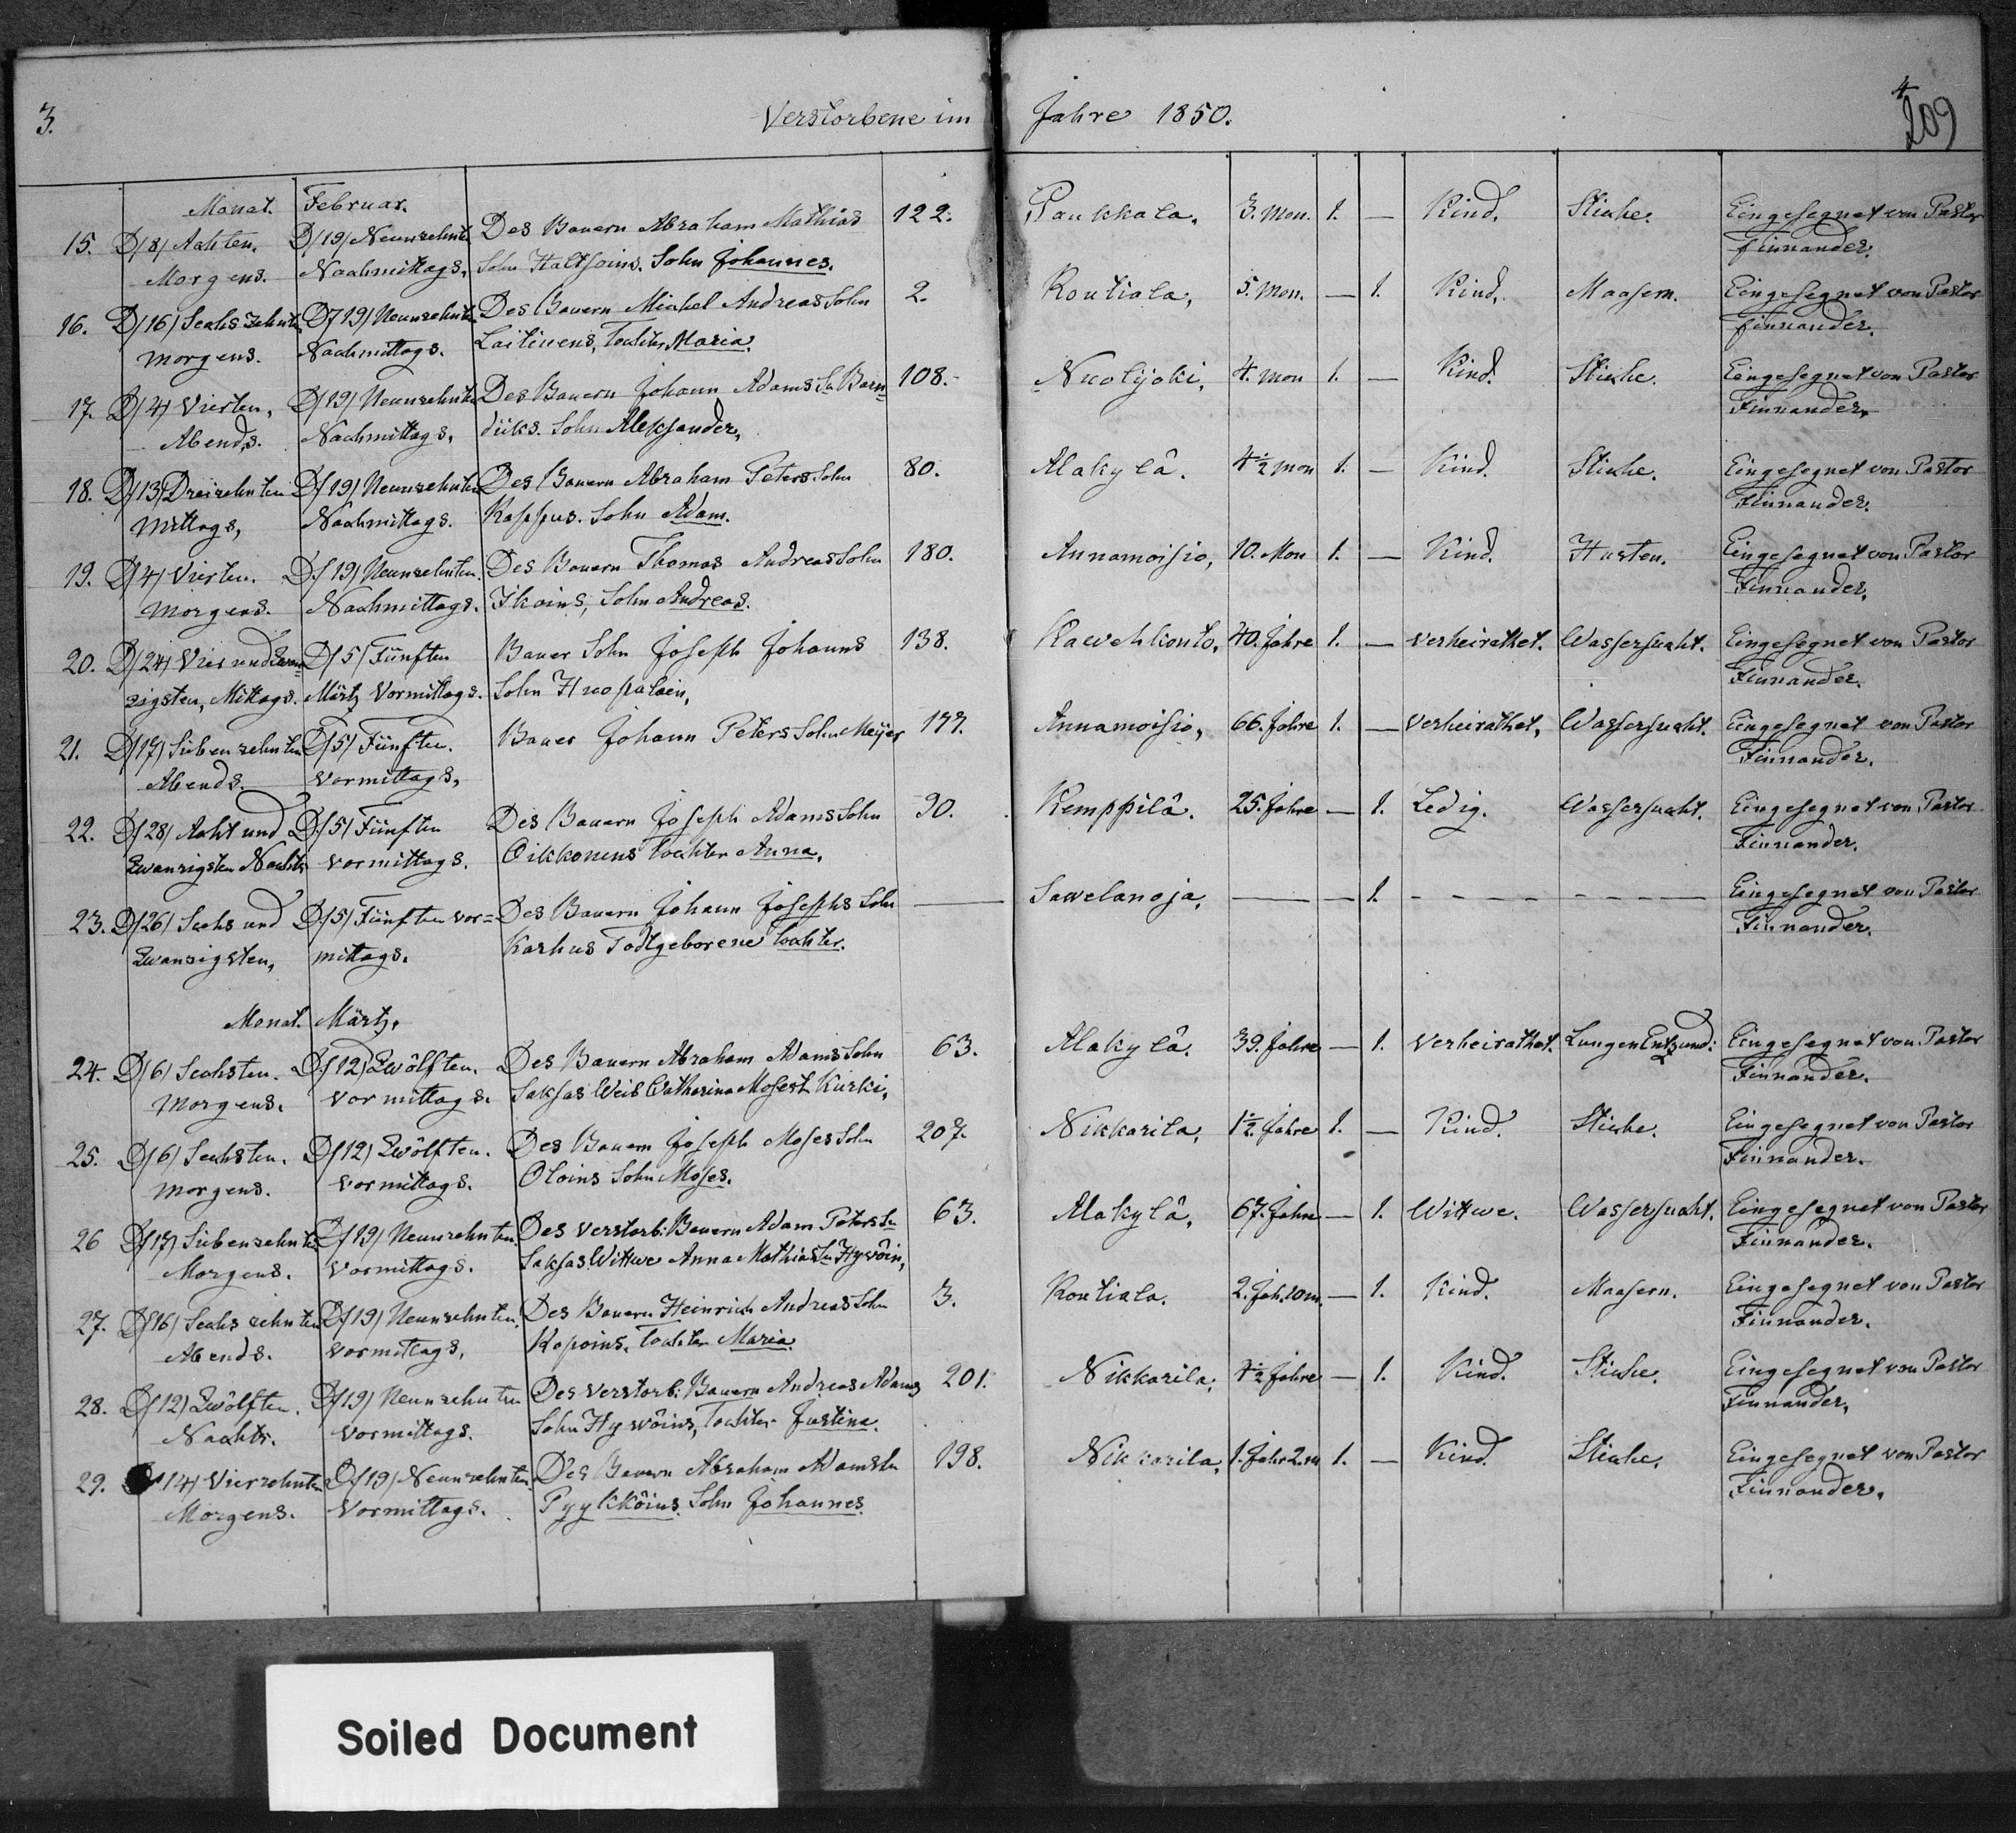 3.
Verstorbene im Jahre 1850.
4
209
Monat. Februar.
15. D/8/ Achten. D/19/ Neunzehnt. Des Bauern Abraham Mathias 122. Paukkala, 3. Mon. 1. — Kind. Stiche. Eingesegnet von Pastor
Morgens. Nachmittags, Sohn Haltsoins. Sohn Johannes. Finnander.
16. D/16/ Sechszehnt. D/19/ Neunzehnt. Des Bauern Michel Andreas Sohn 2. Routiala, 5. Mon. — 1. Kind. Maasern. Eingesegnet von Pastor
Morgens. Nachmittags. Laitinens, Tochter Maria. Finnander.
17. D/4/ Vierten, D/19/ Neunzehnt. Des Bauern Johann Adams Sn Barn= 108. Nuolijoki, 4. Mon 1. — Kind. Stiche. Eingesegnet von Pastor
Abends. Nachmittags, diiks. Sohn Aleksander, Finnander.
18. D/13/ Dreizehnten D/19/ Neunzehnten Des Bauern Abraham Peters Sohn 80. Alakylâ. 4 1/2 Mon 1. — Kind. Stiche. Eingesegnet von Pastor
Mittags, Nachmittags. Rappus. Sohn Adam. Finnander.
19. D/4/ Vierten. D/19/ Neunzehnten. Des Bauern Thomas Andreas Sohn 180. Annamoisio, 10. Mon 1. — Kind. Husten. Eingesegnet von Pastor
Morgens. Nachmittags. Ikoins, Sohn Andreas. Finnander.
20. D/24/ Vier und Zwan= D/5/ Fünften Bauer Sohn Joseph Johanns 138. 40. Jahre 1. — Verheirathet. Wassersucht. Eingesegnet von Pastor
zigsten, Mittags. Märtz Vormittags. Sohn Huopalain, Finnander.
21. D/17/ Siebenzehnten D/5/ Fünften. Bauer Johann Peters Sohn Meijer 177. Annamoisio, 66. Jahre 1. — Verheirathet, Wassersucht. Eingesegnet von Pastor
Abends. Vormittags, Finnander.
22. D/28/ Acht und D/5/ Fünften Des Bauern Joseph Adams Sohn 90. Kemppilâ. 25. Jahre — 1. Ledig. Wassersucht. Eingesegnet von Pastor
Zwanzigsten Nachts Vormittags. Oikkonens Tochter Anna, Finnander.
23. D/26/ Sechs und D/5/ Fünften Vor= Des Bauern Johann Josephs Sohn — Sawelanoja, — — 1. - - - - - - - - Eingesegnet von Pastor
Zwanzigsten, mittags. Karhus Todtgeborene Tochter. Finnander.
Monat. Märtz,
24. D/6/ Sechsten. D/12/ Zwölften. Des Bauern Abraham Adams Sohn 63. Alakylâ. 39. Jahre — 1. Verheirathet. Lungen Entzund: Eingesegnet von Pastor
Morgens. Vormittags. Saksas Weib Catharina Moses t. Kurki, Finnander.
25. D/6/ Sechsten. D/12/ Zwölften. Des Bauern Joseph Moses Sohn 207. Nikkarila, 1 1/2. Jahre 1. — Kind. Stiche. Eingesegnet von Pastor
Morgens. Vormittags. Oloins Sohn Moses. Finnander.
26 D/17/ Siebenzehnt. D/19/ Neunzehnten. Des Verstorb. Bauern Adam Peters Sn 63. Alakylâ, 67. Jahre — 1. Wittwe. Wassersucht. Eingesegnet von Pastor
Morgens. Vormittags. Saksas Wittwe Anna Mathias Hyvöin, Finnander.
27. D/16/ Sechszehnten D/19/ Neunzehnten. Des Bauern Heinrich Andreas Sohn 3. Routiala. 2. Jah. 10 m. — 1. Kind. Maasern. Eingesegnet von Pastor
Abends. Vormittags, Kopoins, Tochter Maria. Finnander.
28. D/12/ Zwölften. D/19/ Neunzehnten Des Verstorb. Bauern Andreas Adams 201. Nikkarila, 4 1/2 Jahre — 1. Kind. Stiche. Eingesegnet von Pastor
Nachts. Vormittags. Sohn Hyvöins, Tochter Justina. Finnander,
29. 14/ Vierzehnten D/19/ Neunzehnten. Des Bauern Abraham Adams Sn 198. Nikkarila, 1. Jahr 2. m 1. — Kind. Stiche. Eingesegnet von Pastor
Morgens. Vormittags. Pyykköins. Sohn Johannes. Finnander.
Soiled Document